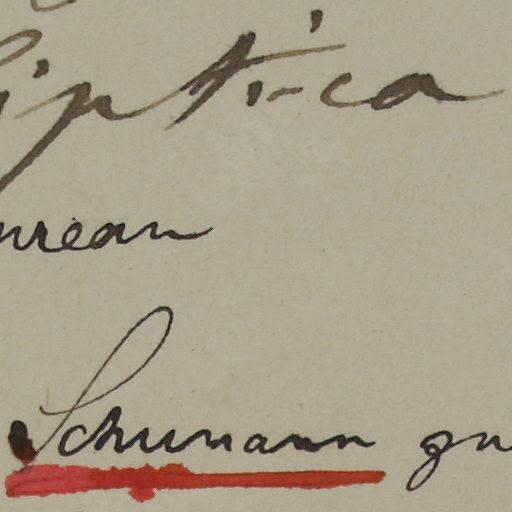 iptica
urean
Schumann